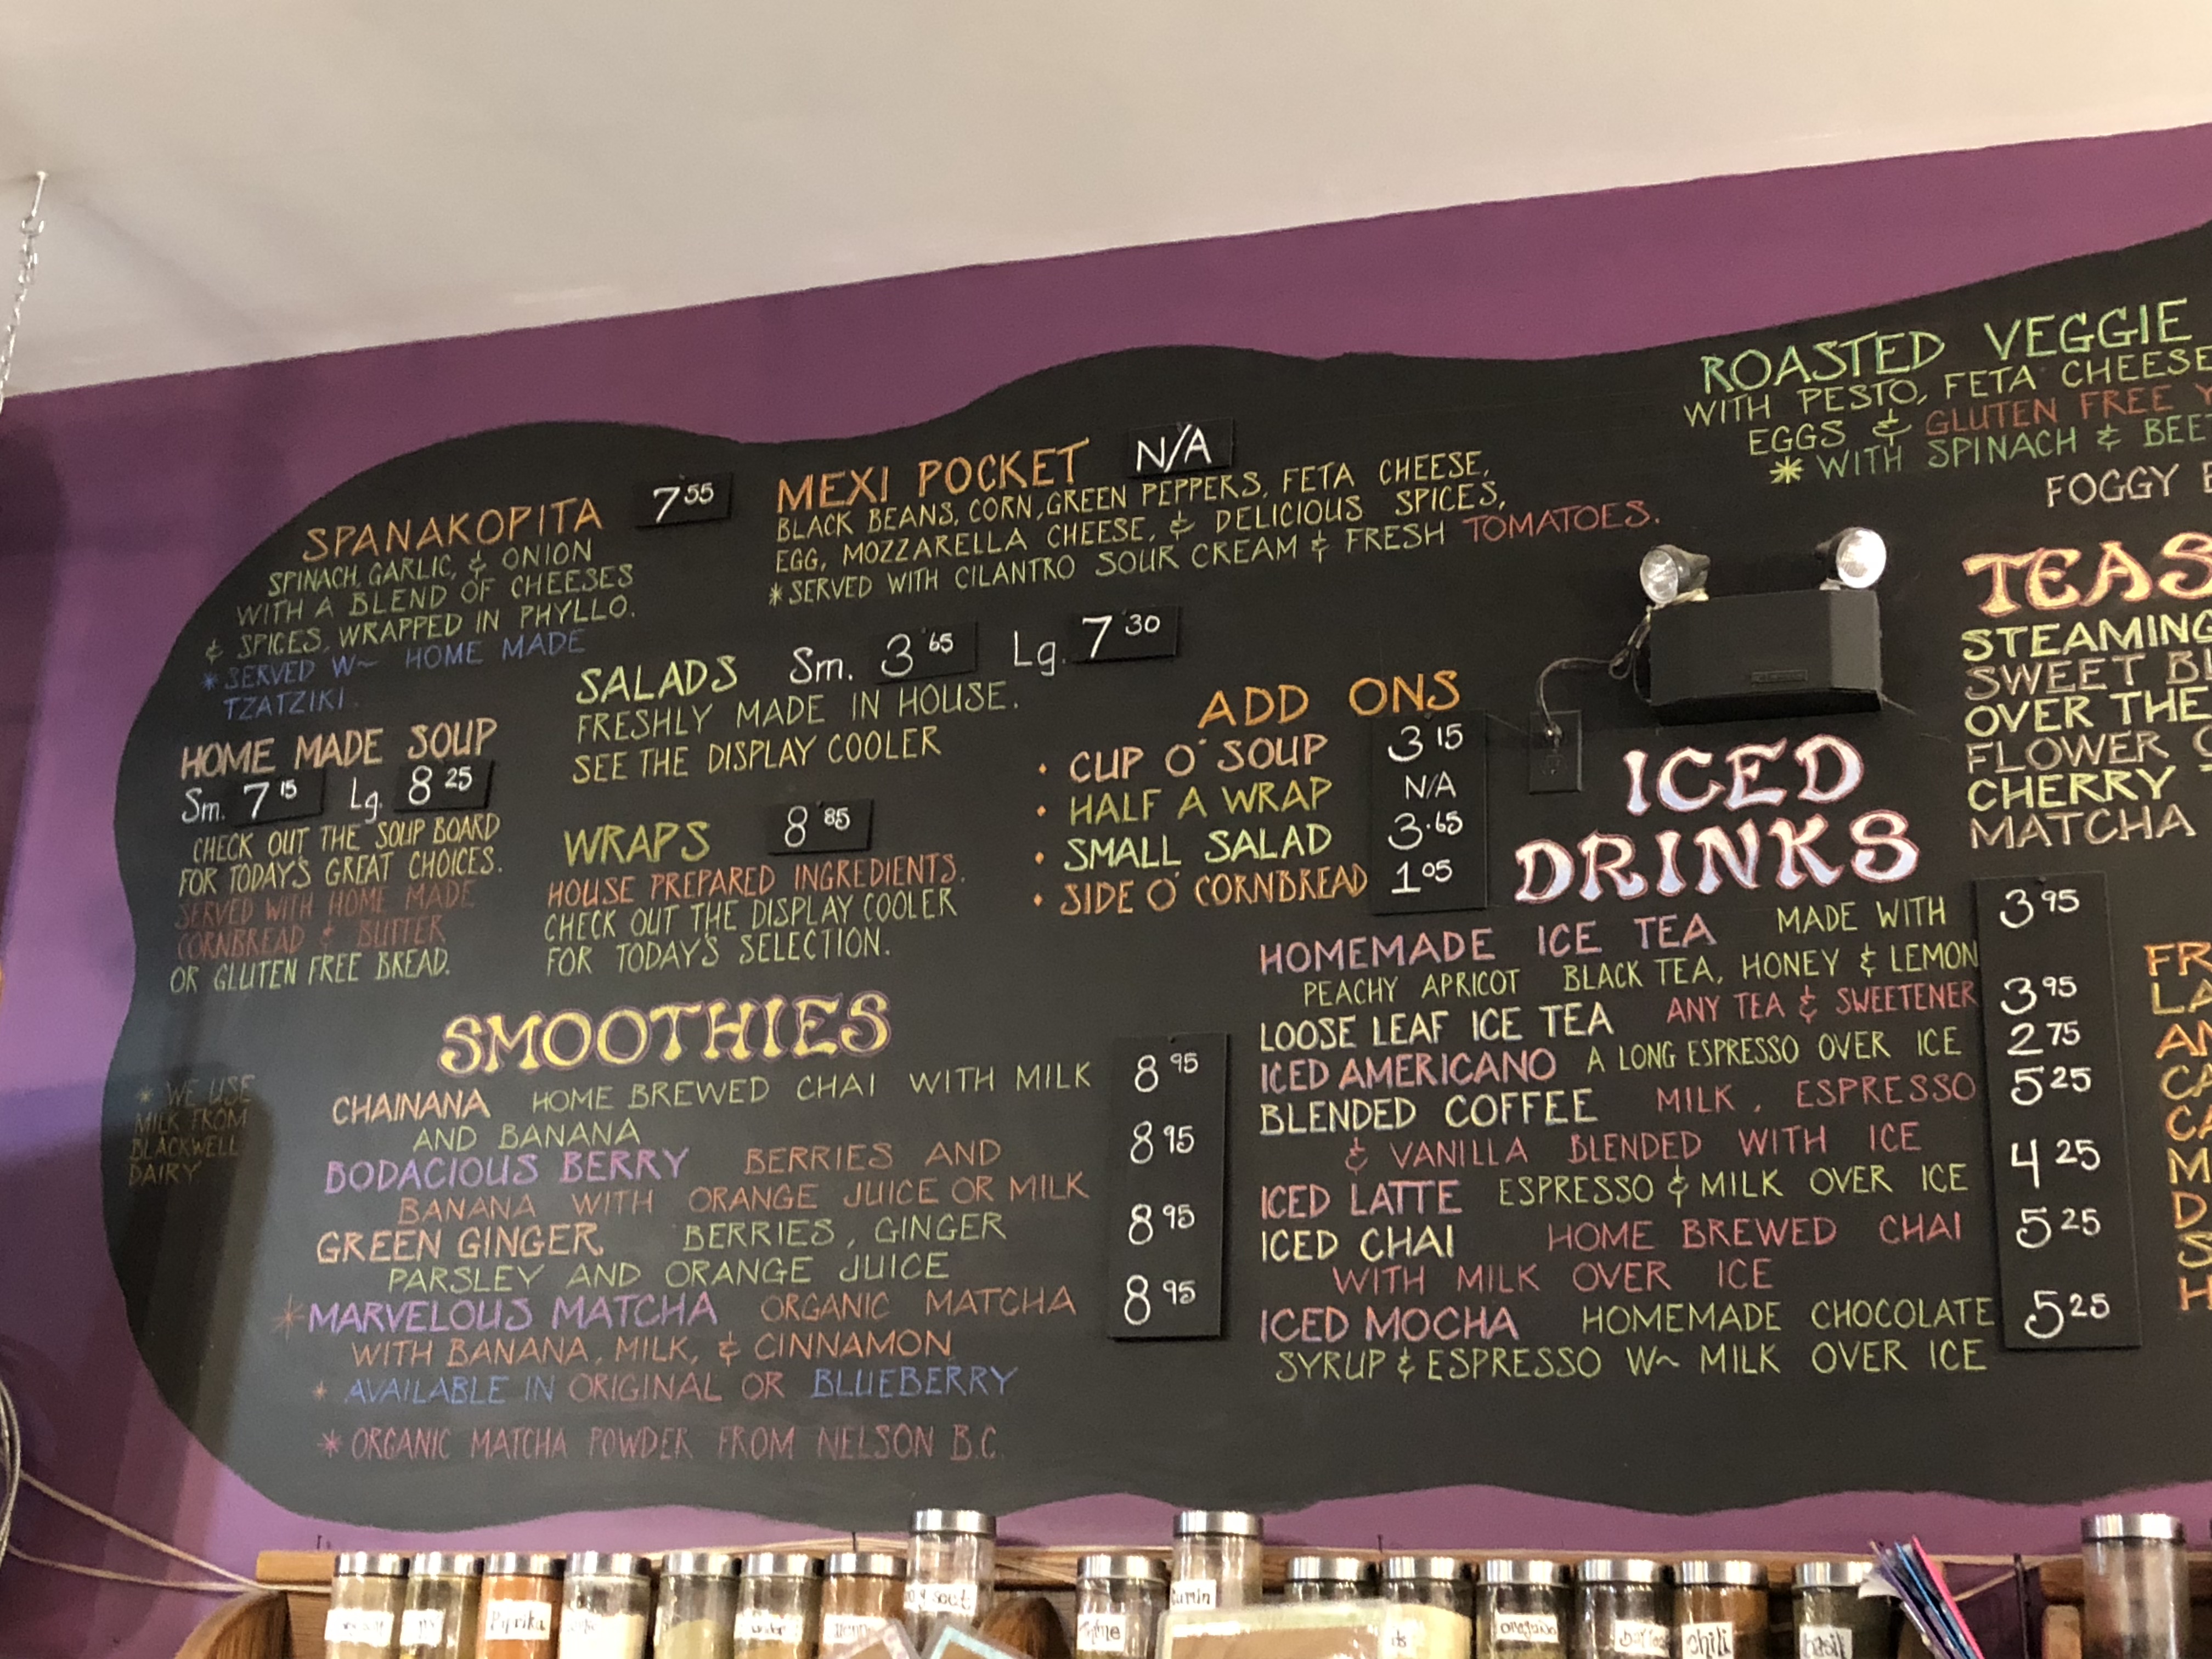 SPANAKOPITA 7 55
SPINACH, GARLIC, & ONION
WITH A BLEND OF CHEESES
& SPICES, WRAPPED IN PHYLLO.
* SERVED W~ HOME MADE
TZATZIKI.
MEXI POCKET N/A
BLACK BEANS, CORN, GREEN PEPPERS, FETA CHEESE,
EGG, MOZZARELLA CHEESE, & DELICIOUS SPICES,
* SERVED WITH CILANTRO SOUR CREAM & FRESH TOMATOES.
HOME MADE SOUP
Sm. 7 15 Lg. 8 25
CHECK OUT THE SOUP BOARD
FOR TODAY'S GREAT CHOICES.
SERVED WITH HOME MADE
CORNBREAD & BUTTER
OR GLUTEN FREE BREAD.
SALADS Sm. 3 65 Lg. 7 30
FRESHLY MADE IN HOUSE.
SEE THE DISPLAY COOLER
WRAPS 8 85
HOUSE PREPARED INGREDIENTS.
CHECK OUT THE DISPLAY COOLER
FOR TODAY'S SELECTION.
ADD ONS
• CUP O' SOUP 3 15
• HALF A WRAP N/A
• SMALL SALAD 3.65
• SIDE O' CORNBREAD 1 05
SMOOTHIES
CHAINANA HOME BREWED CHAI WITH MILK 8 95
AND BANANA
BODACIOUS BERRY BERRIES AND 8 95
BANANA WITH ORANGE JUICE OR MILK
GREEN GINGER BERRIES, GINGER 8 95
PARSLEY AND ORANGE JUICE
* MARVELOUS MATCHA ORGANIC MATCHA 8 95
WITH BANANA, MILK, & CINNAMON
* AVAILABLE IN ORIGINAL OR BLUEBERRY
* ORGANIC MATCHA POWDER FROM NELSON B.C.
* WE USE
MILK FROM
BLACKWELL
DAIRY
ICED
DRINKS
HOMEMADE ICE TEA MADE WITH 3 95
PEACHY APRICOT BLACK TEA, HONEY & LEMON
LOOSE LEAF ICE TEA ANY TEA & SWEETENER 3 95
ICED AMERICANO A LONG ESPRESSO OVER ICE 2 75
BLENDED COFFEE MILK, ESPRESSO 5 25
& VANILLA BLENDED WITH ICE
ICED LATTE ESPRESSO & MILK OVER ICE 4 25
ICED CHAI HOME BREWED CHAI 5 25
WITH MILK OVER ICE
ICED MOCHA HOMEMADE CHOCOLATE 5 25
SYRUP & ESPRESSO W~ MILK OVER ICE
ROASTED VEGGIE
WITH PESTO, FETA CHEESE
EGGS & GLUTEN FREE
* WITH SPINACH & BEE
FOGGY
TEAS
STEAMING
SWEET
OVER THE
FLOWER
CHERRY
MATCHA
FR
LA
AM
CA
CA
M
D
S
H
Paprika
chili
basil